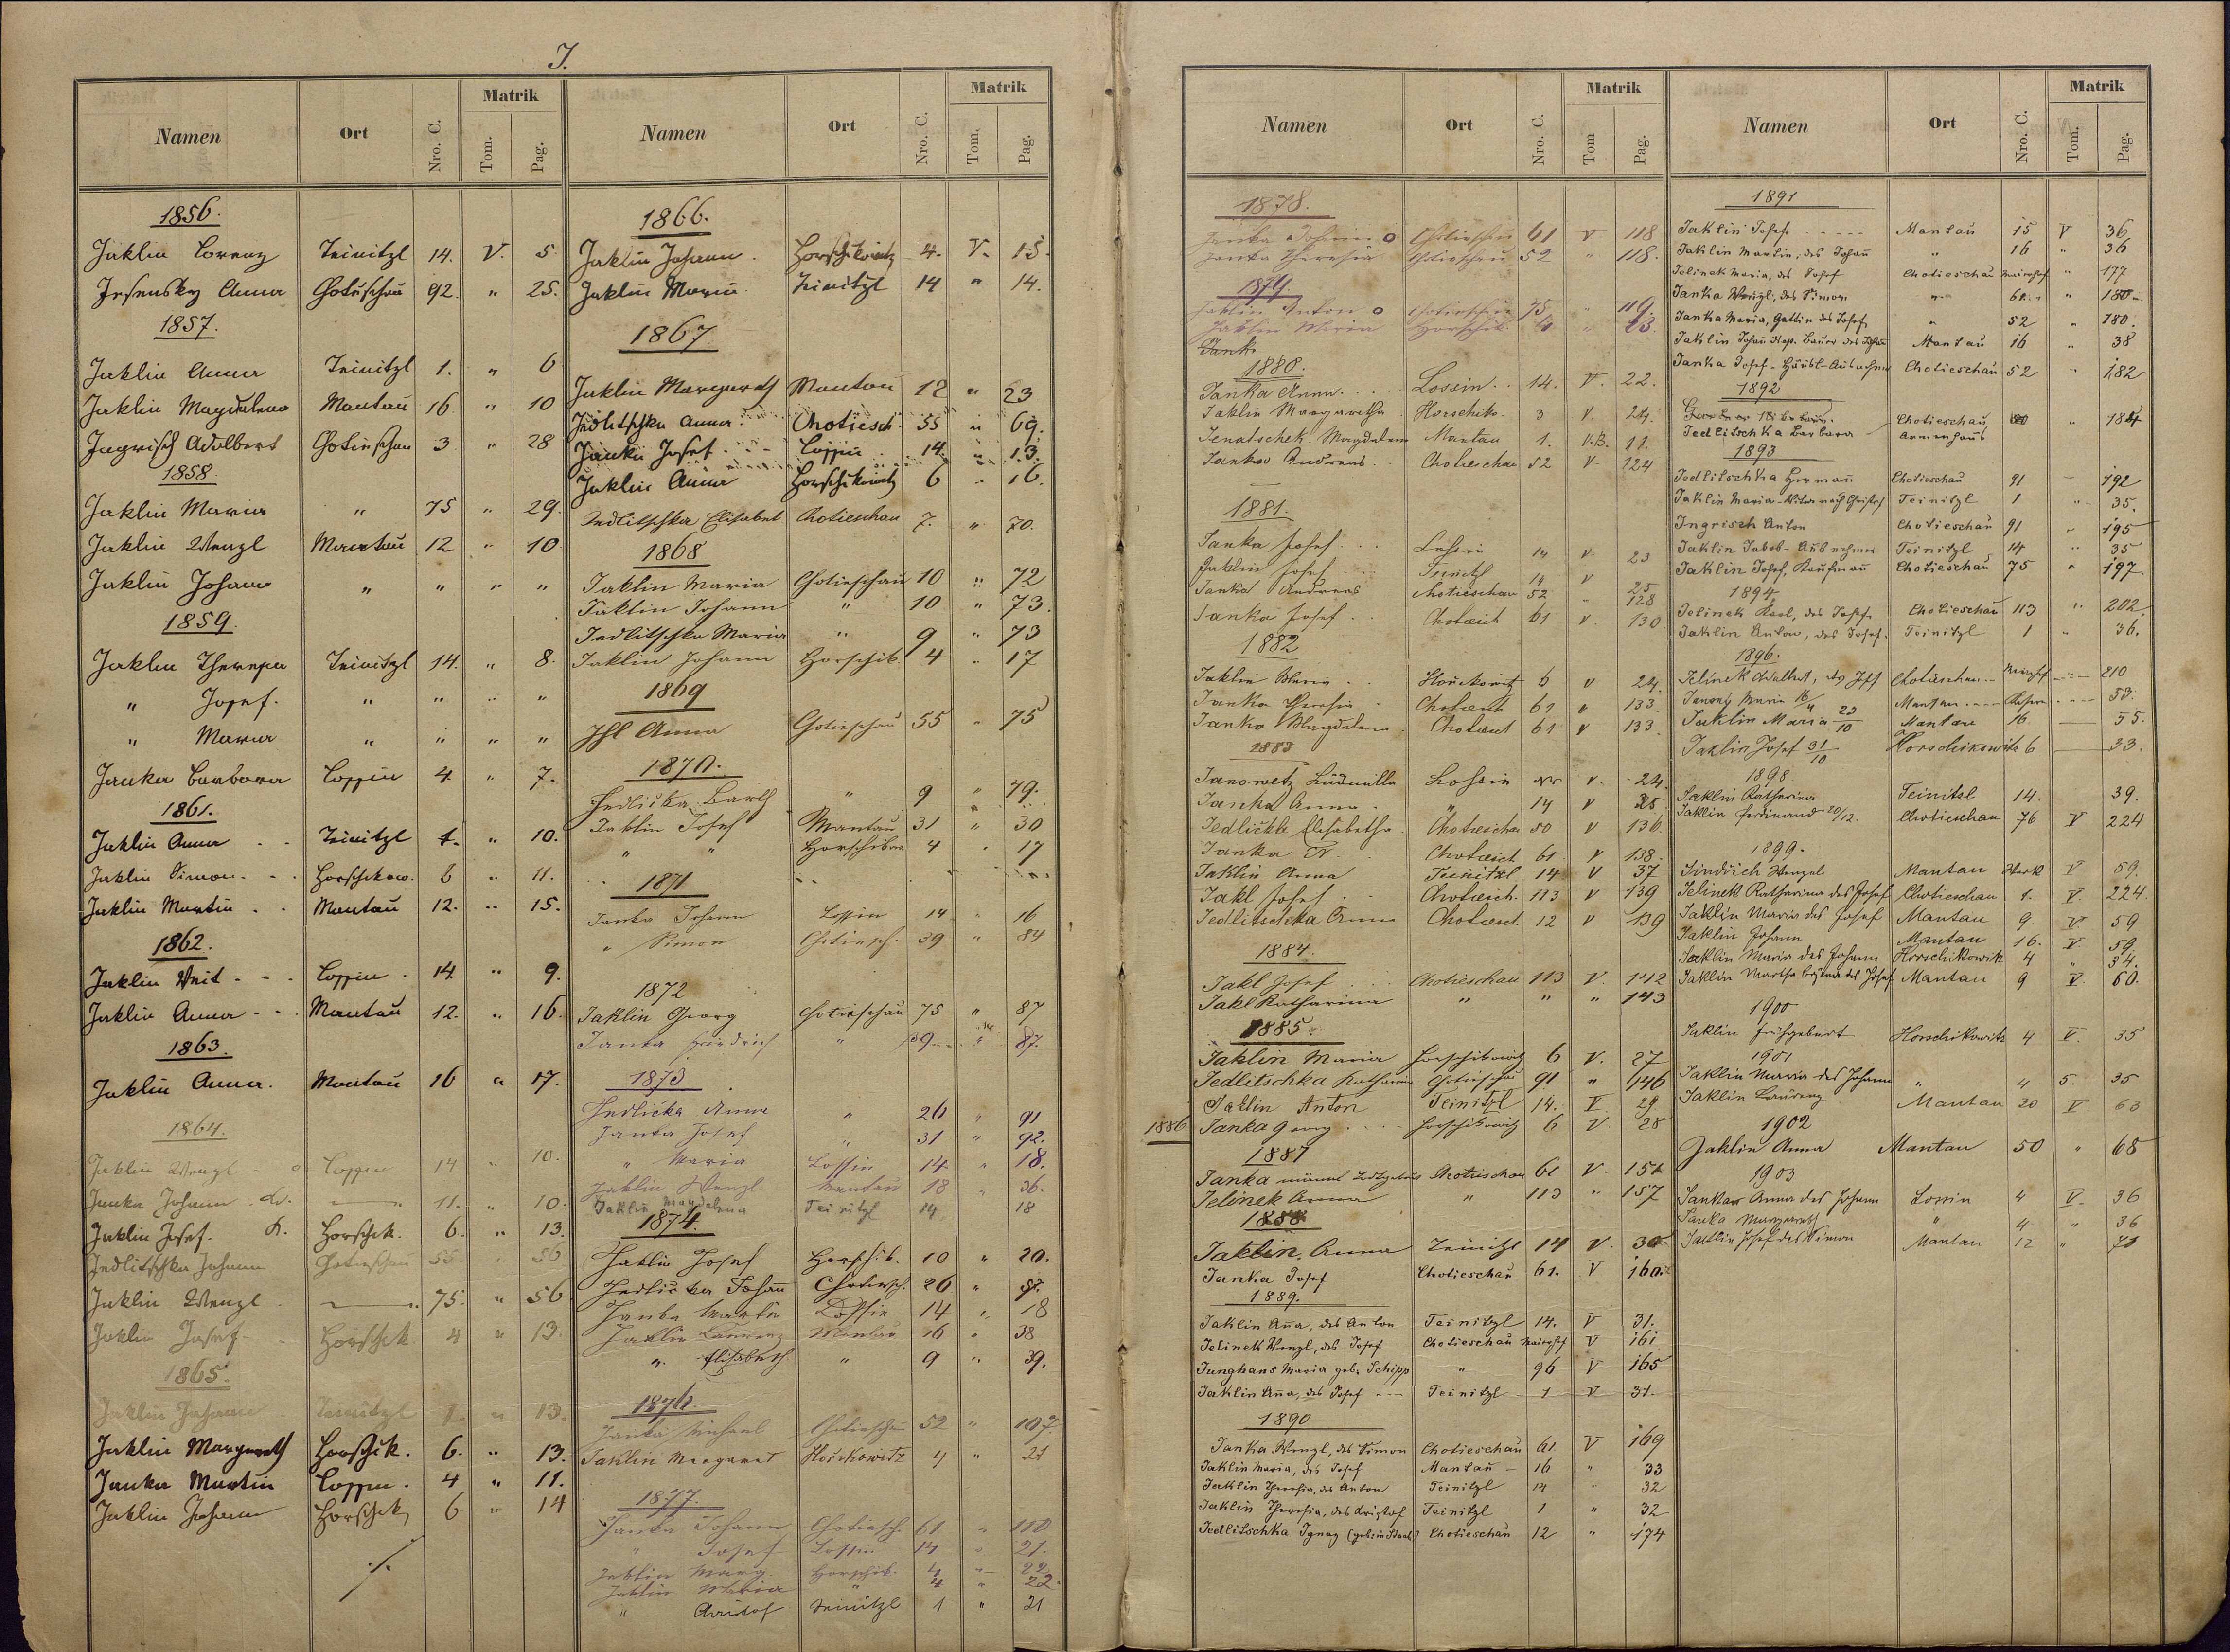 J.
Namen Ort Nro. C. Matrik Tom. Pag.
1856.
Jaklin Lorenz Teinitzl 14. V. 5
Jesensky Anna Chotieschau 92. " 25.
1857.
Jaklin Anna Teinitzl 1. " 6
Jaklin Magdalena Mantau 16. " 10
Ingrisch Adalbert Chotieschau 3 " 28
1858.
Jaklin Maria " 75 " 29.
Jaklin Wenzl Mantau 12 " 10
Jaklin Johann " " " "
1859.
Jaklin Theresia Teinitzl 14. " 8.
" Josef. " " " "
" Maria " " " "
Janka Barbara Lossin 4. " 7.
1861.
Jaklin Anna Teinitzl 1. " 10.
Jaklin Simon Horschikow. 6 " 11.
Jaklin Martin Mantau 12. " 15.
1862.
Jaklin Veit Lossin 14 " 9.
Jaklin Anna Mantau 12. " 16.
1863.
Jaklin Anna. Mantau 16 " 17.
1864.
Jaklin Wenzl Lossin 14 " 10.
Janka Johann 11. " 10.
Jaklin Josef. Horschik. 6. " 13.
Jedlitschka Johann Chotieschau 55. " 56
Jaklin Wenzl 75. " 56
Jaklin Josef. Horschik. 4 " 13.
1865.
Jaklin Johann Teinitzl 1. " 13.
Jaklin Margareth Horschik. 6. " 13.
Janka Martin Lossin. 4 " 11.
Jaklin Johann Horschik 6 " 14
./.
Namen Ort Nro. C. Matrik Tom. Pag.
1866.
Jaklin Johann. Horschikowitz 4. V. 15.
Jaklin Maria. Teinitzl 14 " 14.
1867
Jaklin Margareth Mantau 12 " 23
Jedlitschka Anna. Chotiesch. 55 " 69.
Janka Josef Lossin 14. " 13.
Jaklin Anna Horschikowitz 6 " 16.
Jedlitschka Elisabet Chotieschau 7. " 70.
1868
Jaklin Maria Chotieschau 10 " 72
Jaklin Johann " 10 " 73.
Jedlitschka Maria " 9 " 73
Jaklin Johann Horschik. 4 " 17
1869
Ihl Anna Chotieschau 55 " 75
1870.
Jedlicka Barth " 9 " 79.
Jaklin Josef Mantau 31 " 30
" " Horschikow. 4 " 17
1871
Janka Johann Lossin 14 " 16
" Simon Chotiesch. 39 " 84
1872
Jaklin Georg Chotieschau 75 " 87
Janka Friedrich " 39 " 87.
1873
Jedlicka Anna " 26 " 91
Janka Josef " 31 " 92.
" Maria Lossin 14. " 18.
Jaklin Wenzl Mantau 18 " 36.
Jaklin Magdalena Teinitzl 14 18
1874.
Jaklin Josef Horschik. 10 " 20.
Jedlicka Johann Chotiesch. 26 "
Janka Martin Lossin 14 " 18
Jaklin Laurenz Mantau 16 " 38
" Elisabeth " 9 " 39.
1876.
Janka Michael Chotieschau 52 " 107
Jaklin Margaret Hořikowitz 4 " 21
1877.
Janka Johann Chotiesch. 61 " 110
" Josef Lossin 14 " 21.
Jaklin Marg. Horschik. 4 " 22
Jaklin Maria " 4 " 22.
" Christof Teinitzl 1 " 21
Namen Ort Nro. C. Matrik Tom Pag.
1878.
Janka Johann o Chotieschau 61 V 118
Janka Theresia Chotieschau 52 " 118.
1879.
Jaklin Anton o Chotieschau 75 " 119.
Jaklin Maria Horschik. 4 " 23.
Jank
1880.
Janka Anna Lossin 14. V. 22.
Jaklin Margaretha Horschik. 3 V. 24.
Jenatschek Magdalena Mantau 1. V.B. 11.
Janka Andreas Chotieschau 52 V. 124
1881.
Janka Josef Lossin 14 V. 23
Jaklin Josef Teinitzl 14 V 25
Janka Andreas Chotieschau 52 " 128
Janka Josef Chotiesch 61 V. 130
1882
Jaklin Maria Hořikowitz 6 V 24.
Janka Theresia Chotiesch 61 V 133.
Janka Magdalena Chotiesch 61 V 133.
1883
Janowetz Ludmilla Lossin V. 24.
Janka Anna " 14 V 25
Jedličke Elisabetha Chotieschau 50 V 136.
Janka Chotiesch. 61 V 138.
Jaklin Anna Teinitzl 14 V 37
Jakl Josef Chotiesch. 113 V 139
Jedlitschka Anna Chotiesch. 12 V 139
1884.
Jakl Josef Chotieschau 113 V. 142
Jakl Katharina " " " 143
1885.
Jaklin Maria Horschikowitz 6 V. 27
Jedlitschka Katharina Chotieschau 91 " 146
Jaklin Anton Teinitzl 14. V. 29.
1886 Janka Georg Horschikowitz 6 V. 28
1887
Janka Chotieschau 61 V. 154
Jelinek Anna " 113 " 157
1888
Jaklin Anna Teinitzl 14 V. 30
Janka Josef Chotieschau 61. V 160.
1889.
Jaklin Anna, des Anton Teinitzl 14. V 31.
Jelinek Wenzl, des Josef Chotieschau Maierhof V 161
Junghans Maria geb. Schipp " 96 V 165
Jaklin Anna, des Josef Teinitzl 1 V 31.
1890
Janka Wenzl, des Simon Chotieschau 61 V 169
Jaklin Maria, des Josef Mantau 16 " 33
Jaklin Theresia, des Anton Teinitzl 14 " 32
Jaklin Theresia, des Kristof Teinitzl 1 " 32
Jedlitschka Ignaz Chotieschau 12 " 174
Namen Ort Nro. C. Matrik Tom. Pag.
1891
Jaklin Josef Mantau 15 V 36
Jaklin Martin, des Johann " 16 " 36
Jelinek Maria, des Josef Chotieschau Maierhof " 177
Janka Wenzl, des Simon " 61 " 180
Janka Maria, Gattin des Josef " 52 " 180.
Jaklin Johann Bauer des Johann Mantau 16 " 38
Janka Josef - Häusl-Ausnehmer Chotieschau 52 " 182
1892
Jedlitschka Barbara Chotieschau, Armenhaus " 184
1893
Jedlitschka Hermann Chotieschau 91 192
Jaklin Maria - Witwe nach Christof Teinitzl 1 " 35.
Ingrisch Anton Chotieschau 91 " 195
Jaklin Jakob - Ausnehmer Teinitzl 14 " 35
Jaklin Josef, Kaufmann Chotieschau 75 " 197
1894.
Jelinek Karl, des Josef Chotieschau 113 " 202.
Jaklin Anton, des Josef. Teinitzl 1 " 36.
1896.
Jelinek Adalbert, des Josef Chotieschau Maierhof 210
Maria 16/4 Mantau 53.
Jaklin Maria 23/10 Mantau 16. 55.
Jaklin Josef 31/10 Horschikowitz 6 33.
1898.
Jaklin Katharina Teinitzl 14. 39.
Jaklin Ferdinand 20/12. Chotieschau 76 V 224
1899.
Jindřich Wenzel Mantau Werk V 59.
Jelinek Katharina des Josef Chotieschau 1. V. 224.
Jaklin Maria des Josef Mantau 9. V. 59
Jaklin Johann Mantau 16. V. 59.
Jaklin Maria des Johann Horschikowitz 4 " 34.
Jaklin Martha des Josef Mantau 9 V. 60.
1900
Jaklin Frühgeburt Horschikowitz 4 V. 35
1901
Jaklin Maria des Johann " 4 5. 35
Jaklin Laurenz Mantau 20 V 63
1902
Jaklin Anna Mantau 50 " 68
1903
Janka Anna des Johann Lossin 4 V. 36
Janka Margareth " 4 " 36
Jaklin Josef des Simon Mantau 12 " 71